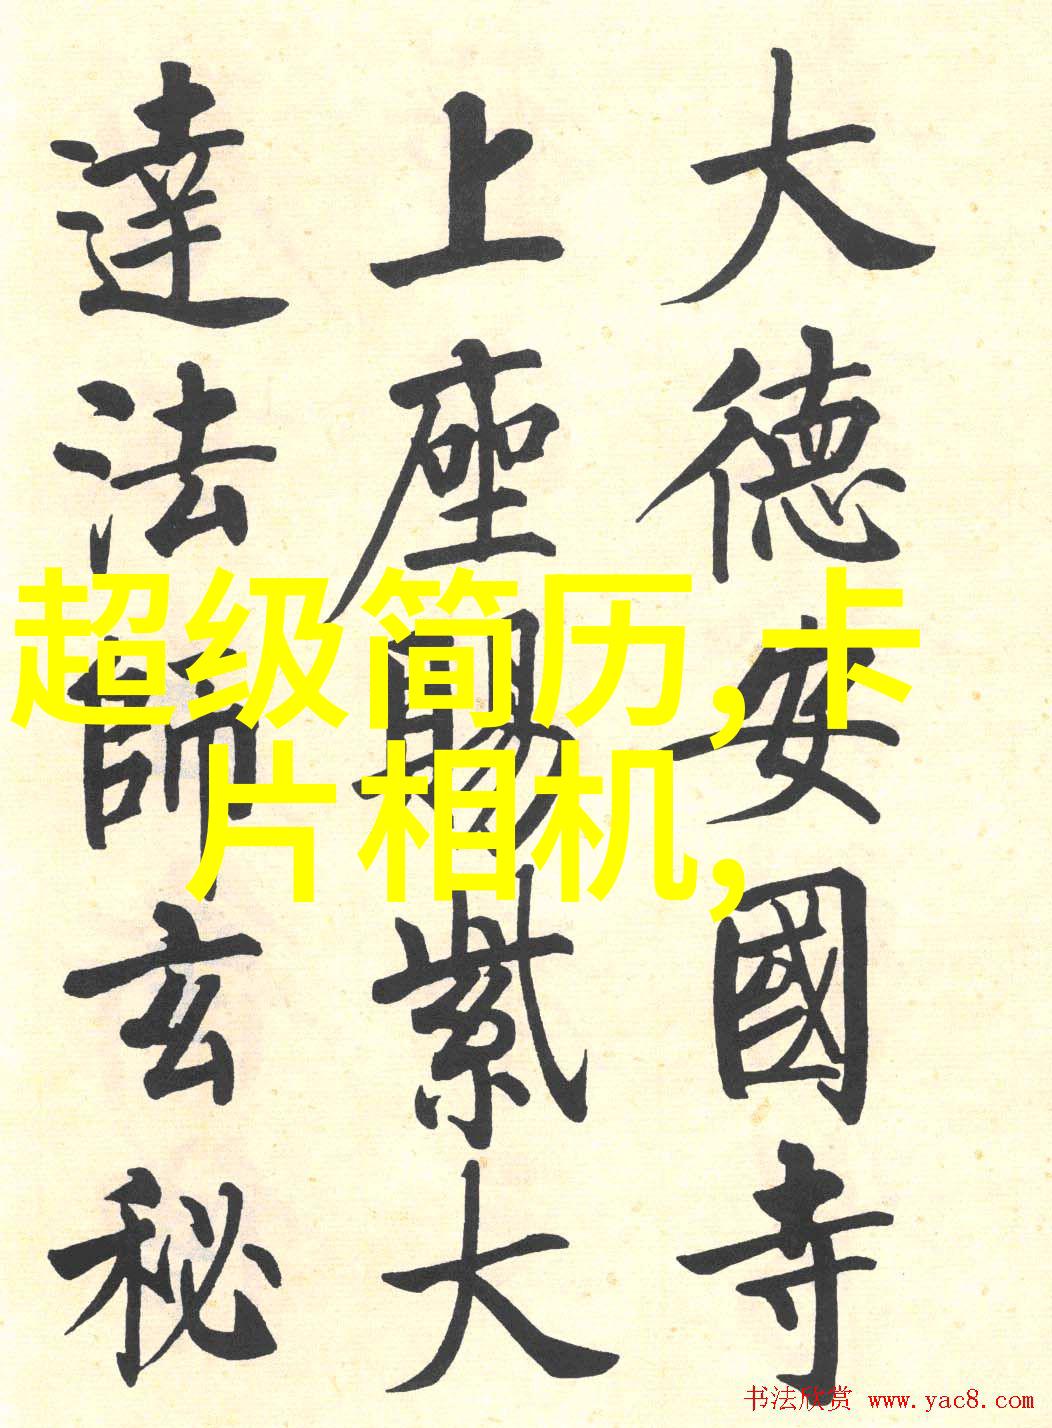 大德安國寺
上座賜紫大
達法師玄秘
超级简历,卡
片相机,
书法欣赏 www.yac8.com